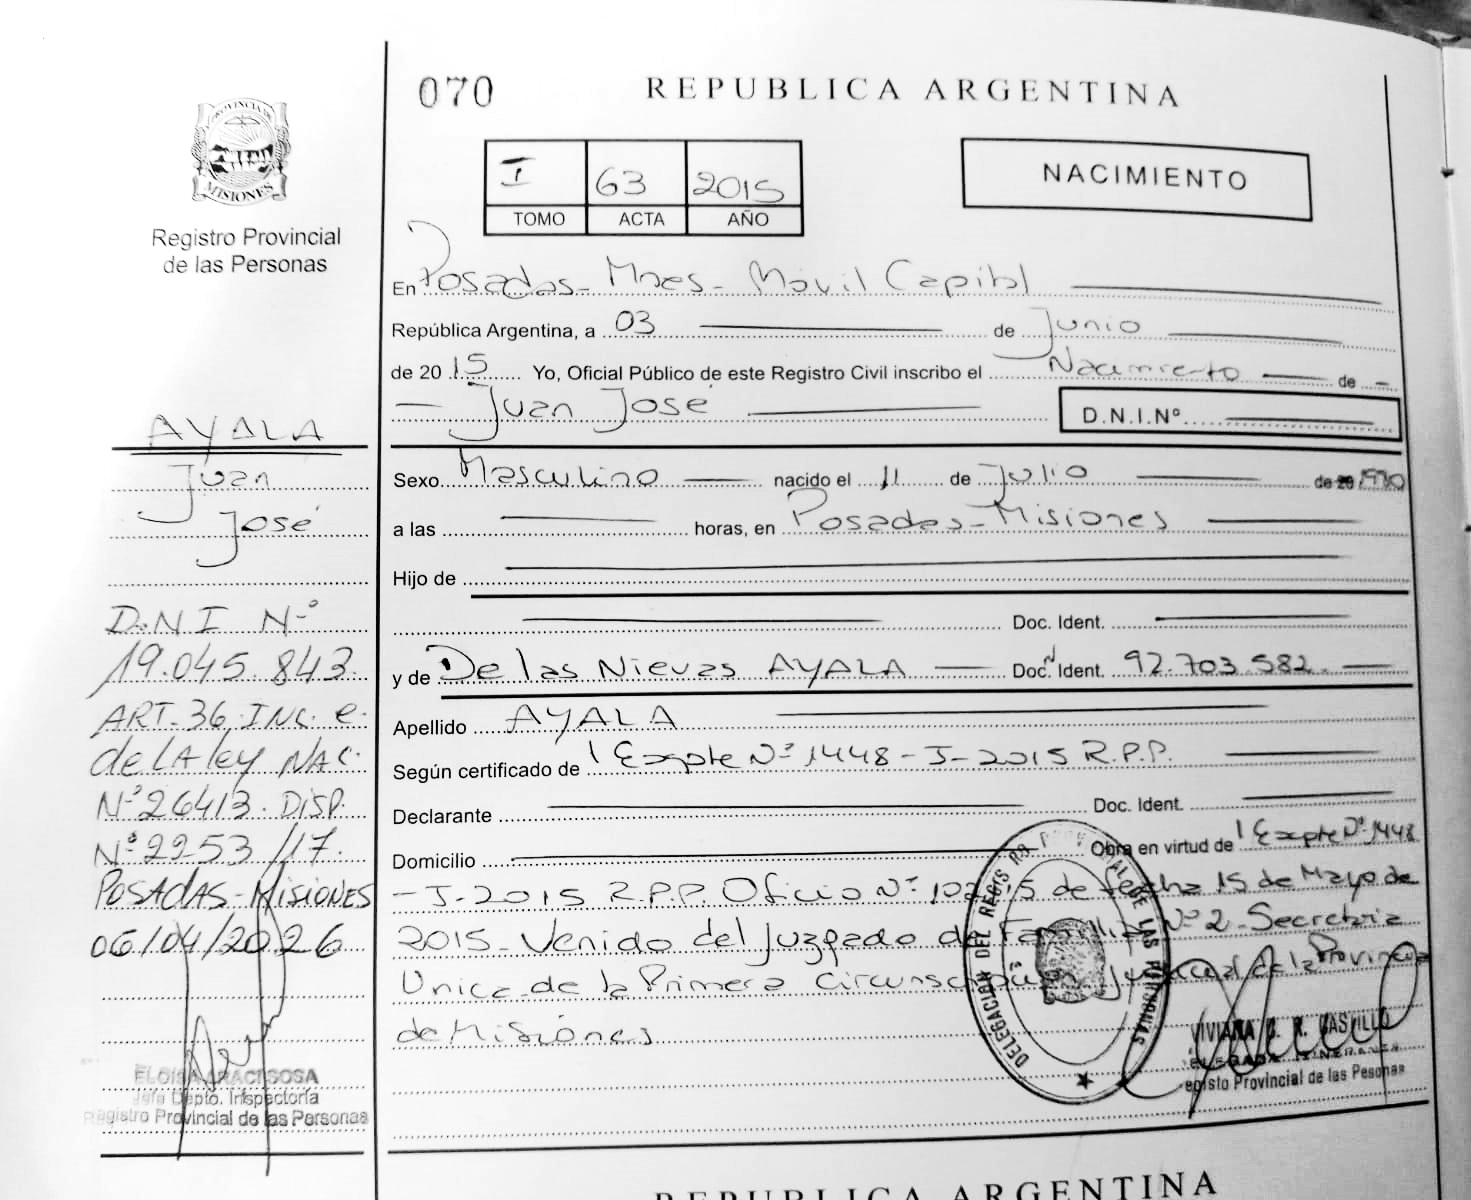 070
REPUBLICA ARGENTINA
PROVINCIA DE
MISIONES
Registro Provincial
de las Personas
I 63 2015
TOMO ACTA AÑO
NACIMIENTO
En Posadas- Mnes- Móvil Capital
República Argentina, a 03 de Junio
de 2015 Yo, Oficial Público de este Registro Civil inscribo el Nacimiento de
Juan José
D.N.I.Nº
Sexo Masculino nacido el 11 de Julio de 20 1990
a las horas, en Posadas-Misiones
Hijo de
Doc. Ident.
y de De las Nieves AYALA Doc. Ident. 92.703.582
Apellido AYALA
Según certificado de Expte Nº 1448-J-2015 R.P.P.
Declarante Doc. Ident.
Domicilio Obra en virtud de Expte Nº 1448
-J-2015 R.P.P. Oficio Nº 102 15 de fecha 15 de Mayo de
2015- Venido del Juzgado de Familia Nº 2- Secretaria
Unica-de la Primera Circunscripción Judicial de la Provincia
de Misiones
DELEGACION DEL REGISTRO PROVINCIAL DE LAS PERSONAS
VIVIANA R. CASTILLO
DELEGADA ITINERANTE
Registo Provincial de las Pesonas
AYALA
Juan
José
D.N.I Nº
19.045.843.
ART-36 INC. e.
de LA ley NAC.
Nº 26413. DISP.
Nº 2253/17.
POSADAS-MISIONES
06/04/2026
ELOISA ARACI SOSA
Jefa Depto. Inspectoría
Registro Provincial de las Personas
REPUBLICA ARGENTINA